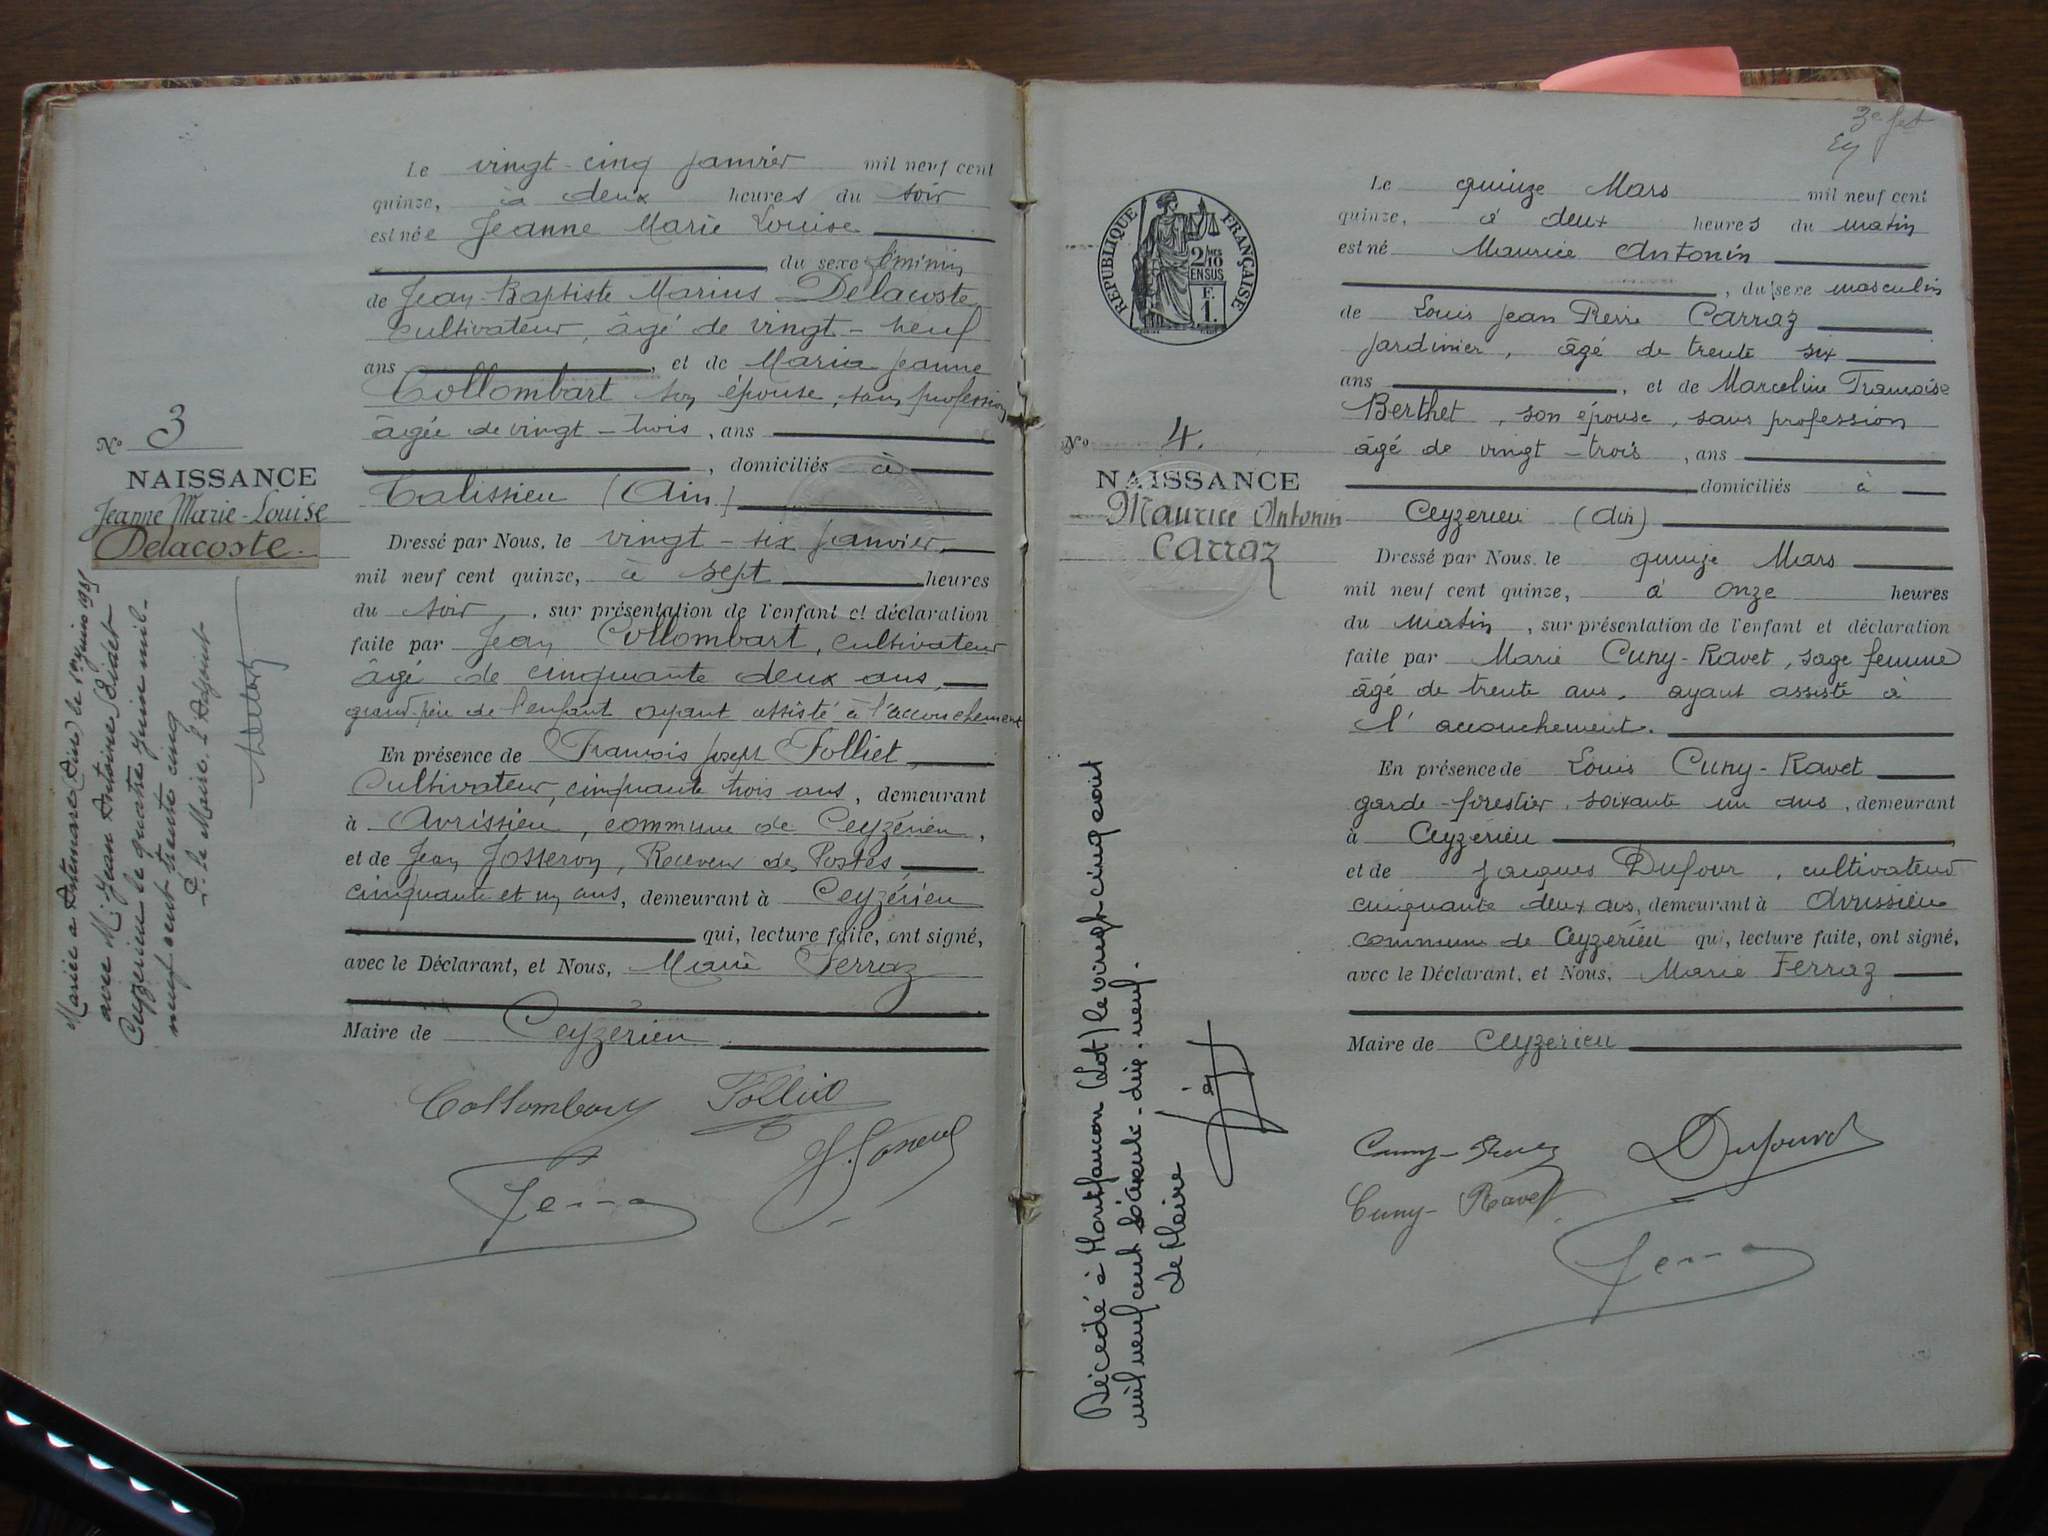 Le vingt-cinq janvier mil neuf cent
quinze, à deux heures du soir
est née Jeanne Marie Louise
, du sexe féminin
de Jean-Baptiste Marius Delacoste
cultivateur, âgé de vingt-neuf
ans , et de Maria Jeanne
Collombart son épouse, sans profession
âgée de vingt-trois, ans
, domiciliés à
Talissieu (Ain)
Dressé par Nous, le vingt-six janvier
mil neuf cent quinze, à sept heures
du soir, sur présentation de l'enfant et déclaration
faite par Jean Collombart, cultivateur
âgé de cinquante deux ans,
grand-père de l'enfant ayant assisté à l'accouchement
En présence de François Joseph Folliet,
Cultivateur, cinquante trois ans, demeurant
à Avrissieu, commune de Ceyzérieu,
et de Jean Josseron, Receveur des Postes,
cinquante et un ans, demeurant à Ceyzérieu
qui, lecture faite, ont signé,
avec le Déclarant, et Nous, Marie Ferraz
Maire de Ceyzérieu
Collombart Folliet
No 3
NAISSANCE
Jeanne Marie-Louise
Delacoste.
Mariée à Artemare (Ain) le 1er juin 1935
avec M. Jean Antoine
Ceyzerieu le quatre juin mil-
neuf cent trente cinq
P. le Maire. L'Adjoint
3e
Le quinze Mars mil neuf cent
quinze, à deux heures du matin
est né Maurice Antonin
, du sexe masculin
de Louis Jean Pierre Carraz
jardinier, âgé de trente six
ans , et de Marceline Françoise
Berthet, son épouse, sans profession
âgé de vingt-trois, ans
domiciliés à
Ceyzerieu (Ain)
Dressé par Nous, le quinze Mars
mil neuf cent quinze, à onze heures
du matin, sur présentation de l'enfant et déclaration
faite par Marie Cuny-Ravet, sage femme
âgé de trente ans, ayant assisté à
l'accouchement.
En présence de Louis Cuny-Ravet
garde-forestier, soixante un ans, demeurant
à Ceyzerieu
et de Jacques Dufour, cultivateur
cinquante deux ans, demeurant à Avrissieu
commune de Ceyzerieu qui, lecture faite, ont signé,
avec le Déclarant, et Nous, Marie Ferraz
Maire de Ceyzerieu
Cuny-Ravet Dufour
Cuny-Ravet
RÉPUBLIQUE FRANÇAISE
2/10
EN SUS
F.
1.
No 4.
NAISSANCE
Maurice Antonin
Carraz
Décédé à Montfaucon (Lot) le vingt cinq août
mil neuf cent soixante-dix-neuf.
Le Maire